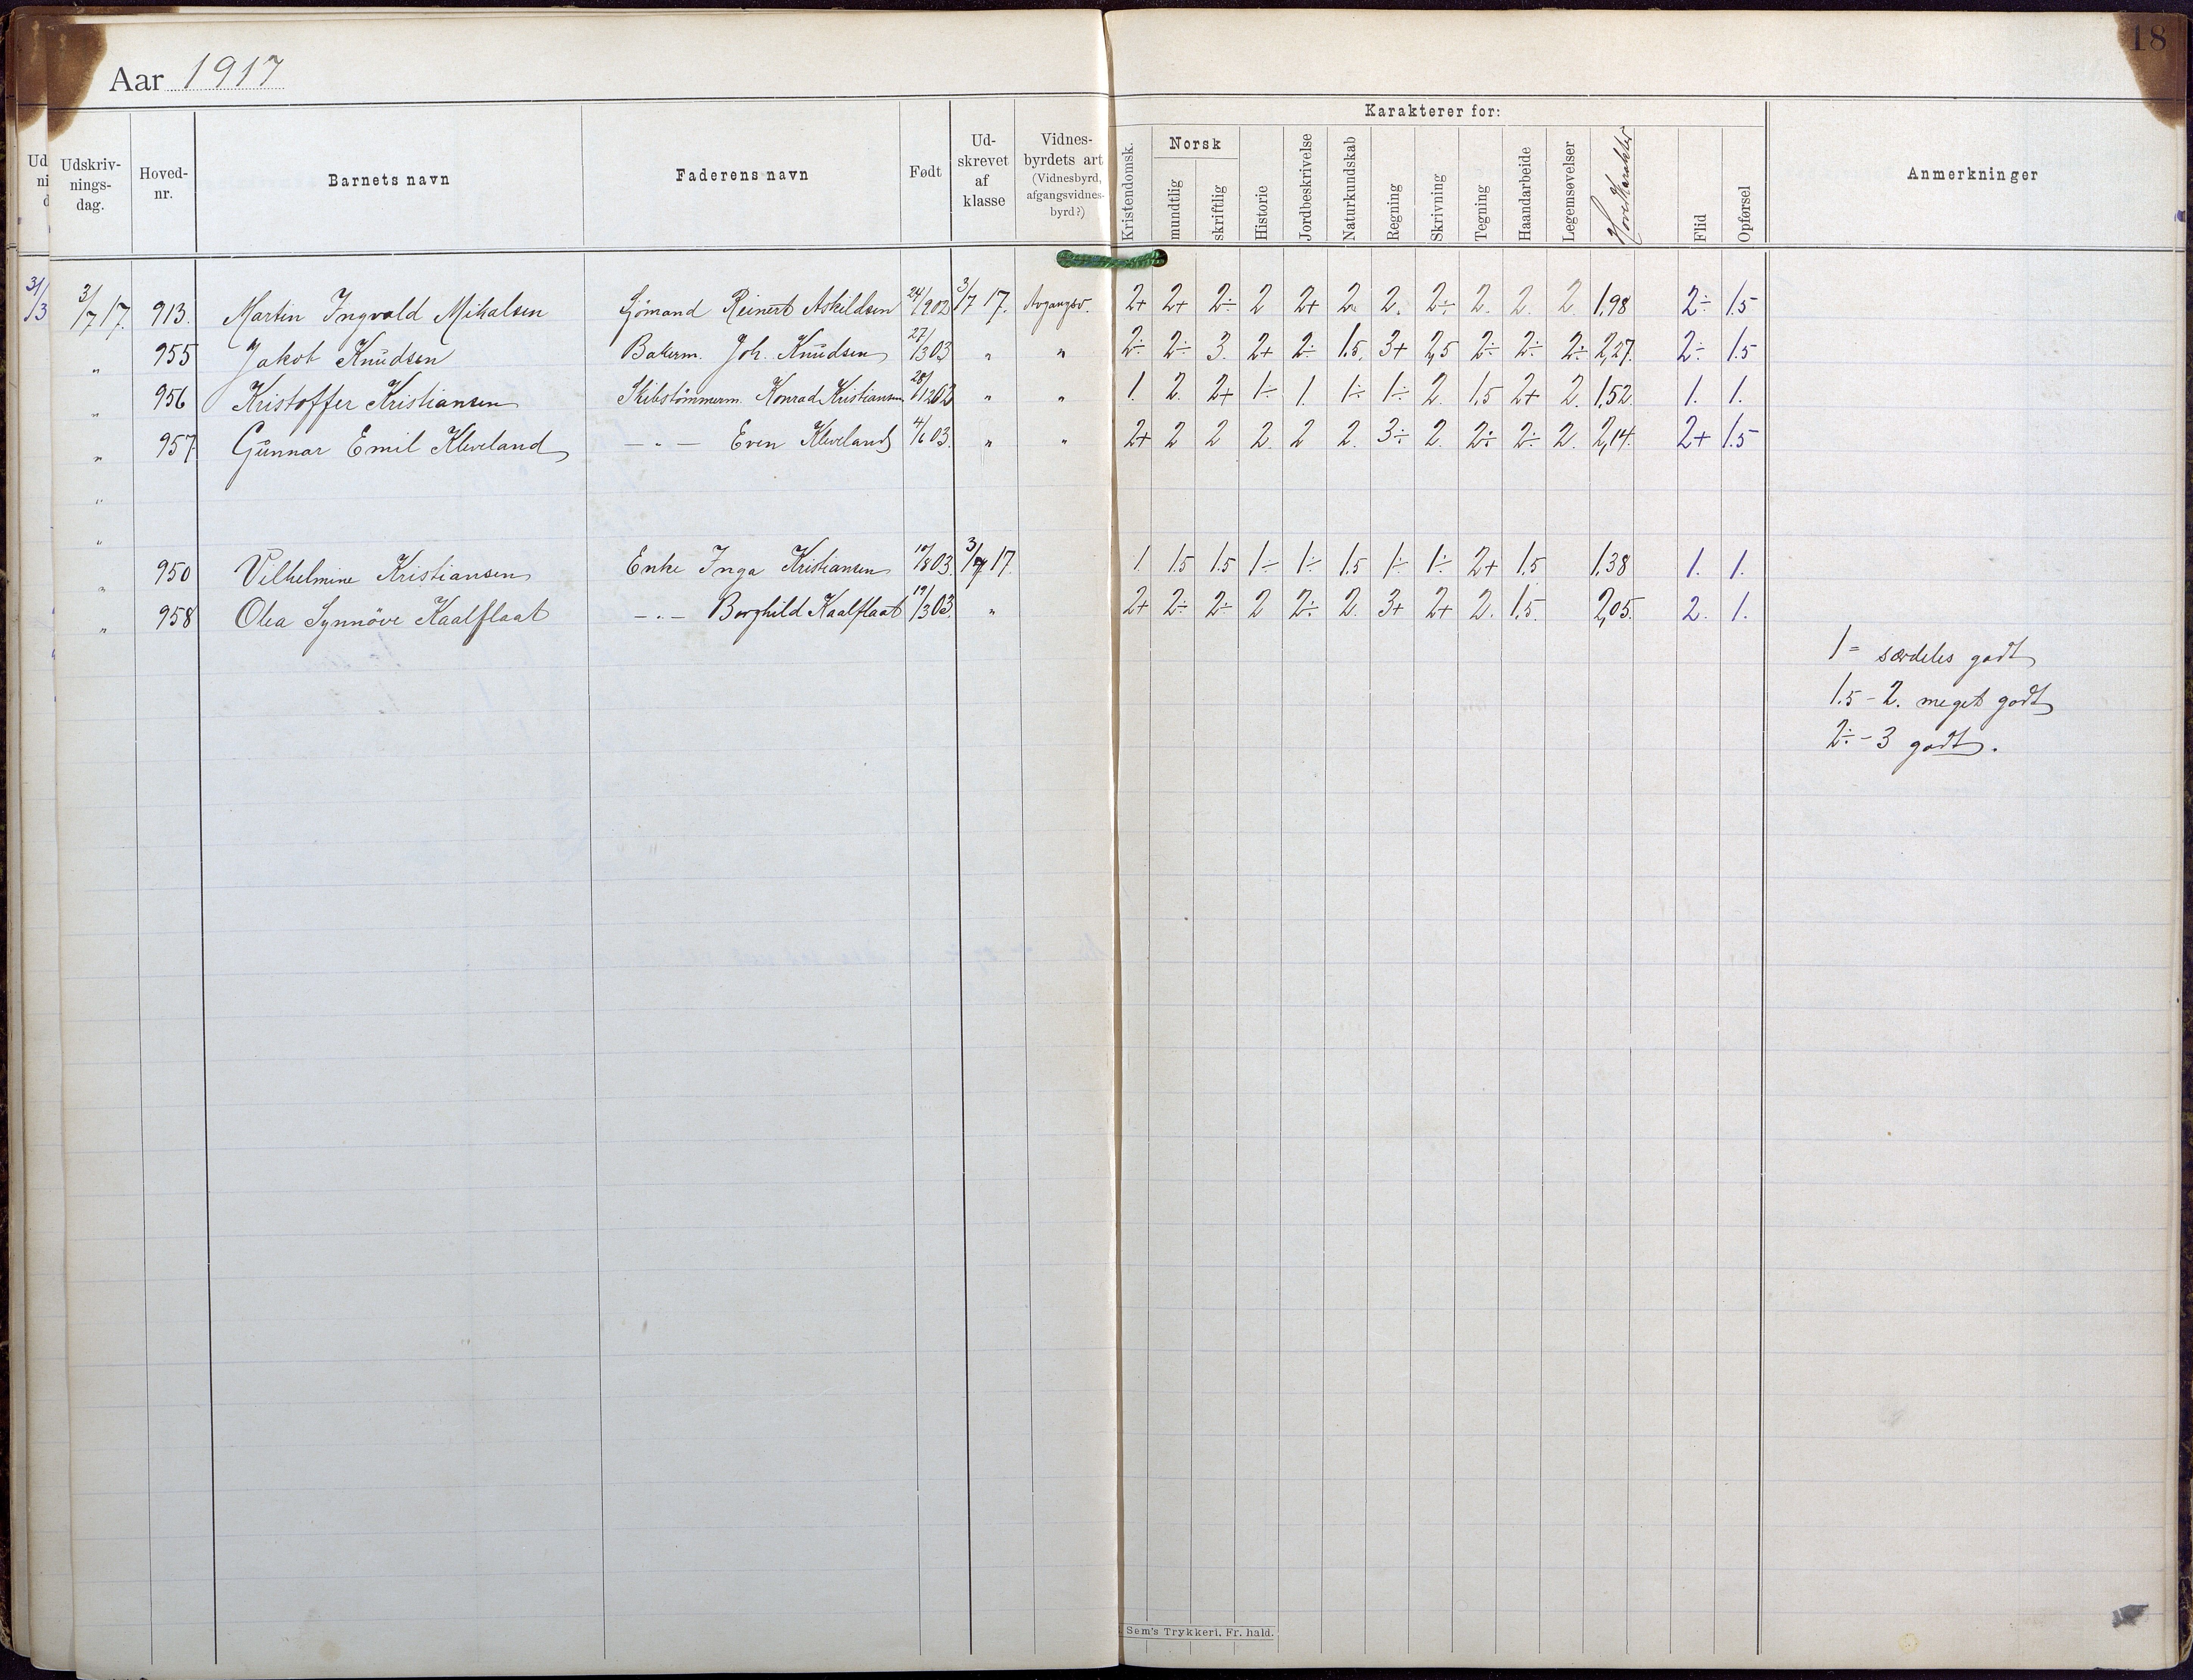 18
Aar 1917
Karakterer for:
Udskriv-nings-dag. Hoved-nr. Barnets navn Faderens navn Født Ud-skrevet af klasse Vidnes-byrdets art (Vidnesbyrd, afgangsvidnes-byrd?) Kristendomsk. Norsk mundtlig skriftlig Historie Jordbeskrivelse Naturkundskab Regning Skrivning Tegning Haandarbeide Legemsøvelser Hovedkarakter Flid Opførsel Anmerkninger
3/7 17. 913. Martin Ingvald Mikalsen Sjømand Reinert Askildsen 24/9 02 3/7 17. Avgangsv. 2+ 2+ 2÷ 2 2+ 2. 2. 2÷ 2. 2. 2 1,98 2÷ 1.5
" 955 Jakob Knudsen Bakerm. Joh. Knudsen 27/3 03 " " 2÷ 2÷ 3. 2+ 2÷ 1.5. 3+ 2,5 2÷ 2÷ 2÷ 2,27. 2÷ 1.5
" 956 Kristoffer Kristiansen Skibstømmerm. Konrad Kristiansen 28/12 02 " " 1. 2. 2+ 1÷ 1 1÷ 1÷ 2. 1.5 2+ 2. 1,52. 1. 1.
" 957. Gunnar Emil Kleveland — " — Even Kleveland 4/6 03. " " 2+ 2 2 2. 2 2. 3÷ 2. 2÷ 2÷ 2. 2,14. 2+ 1.5
"
"
" 950 Vilhelmine Kristiansen Enke Inga Kristiansen 10/8 03. 3/7 17. 1 1.5 1.5 1÷ 1÷ 1.5 1÷ 1÷ 2+ 1.5 1,38 1. 1.
" 958 Olea Synnöve Kaalflaat — " — Borghild Kaalflaat 19/3 03. " 2+ 2÷ 2÷ 2 2÷ 2. 3+ 2+ 2. 1.5. 2,05. 2. 1.
1 = særdeles godt
1.5 - 2. meget godt
2÷ - 3 godt.
Sem's Trykkeri. Fr. hald.